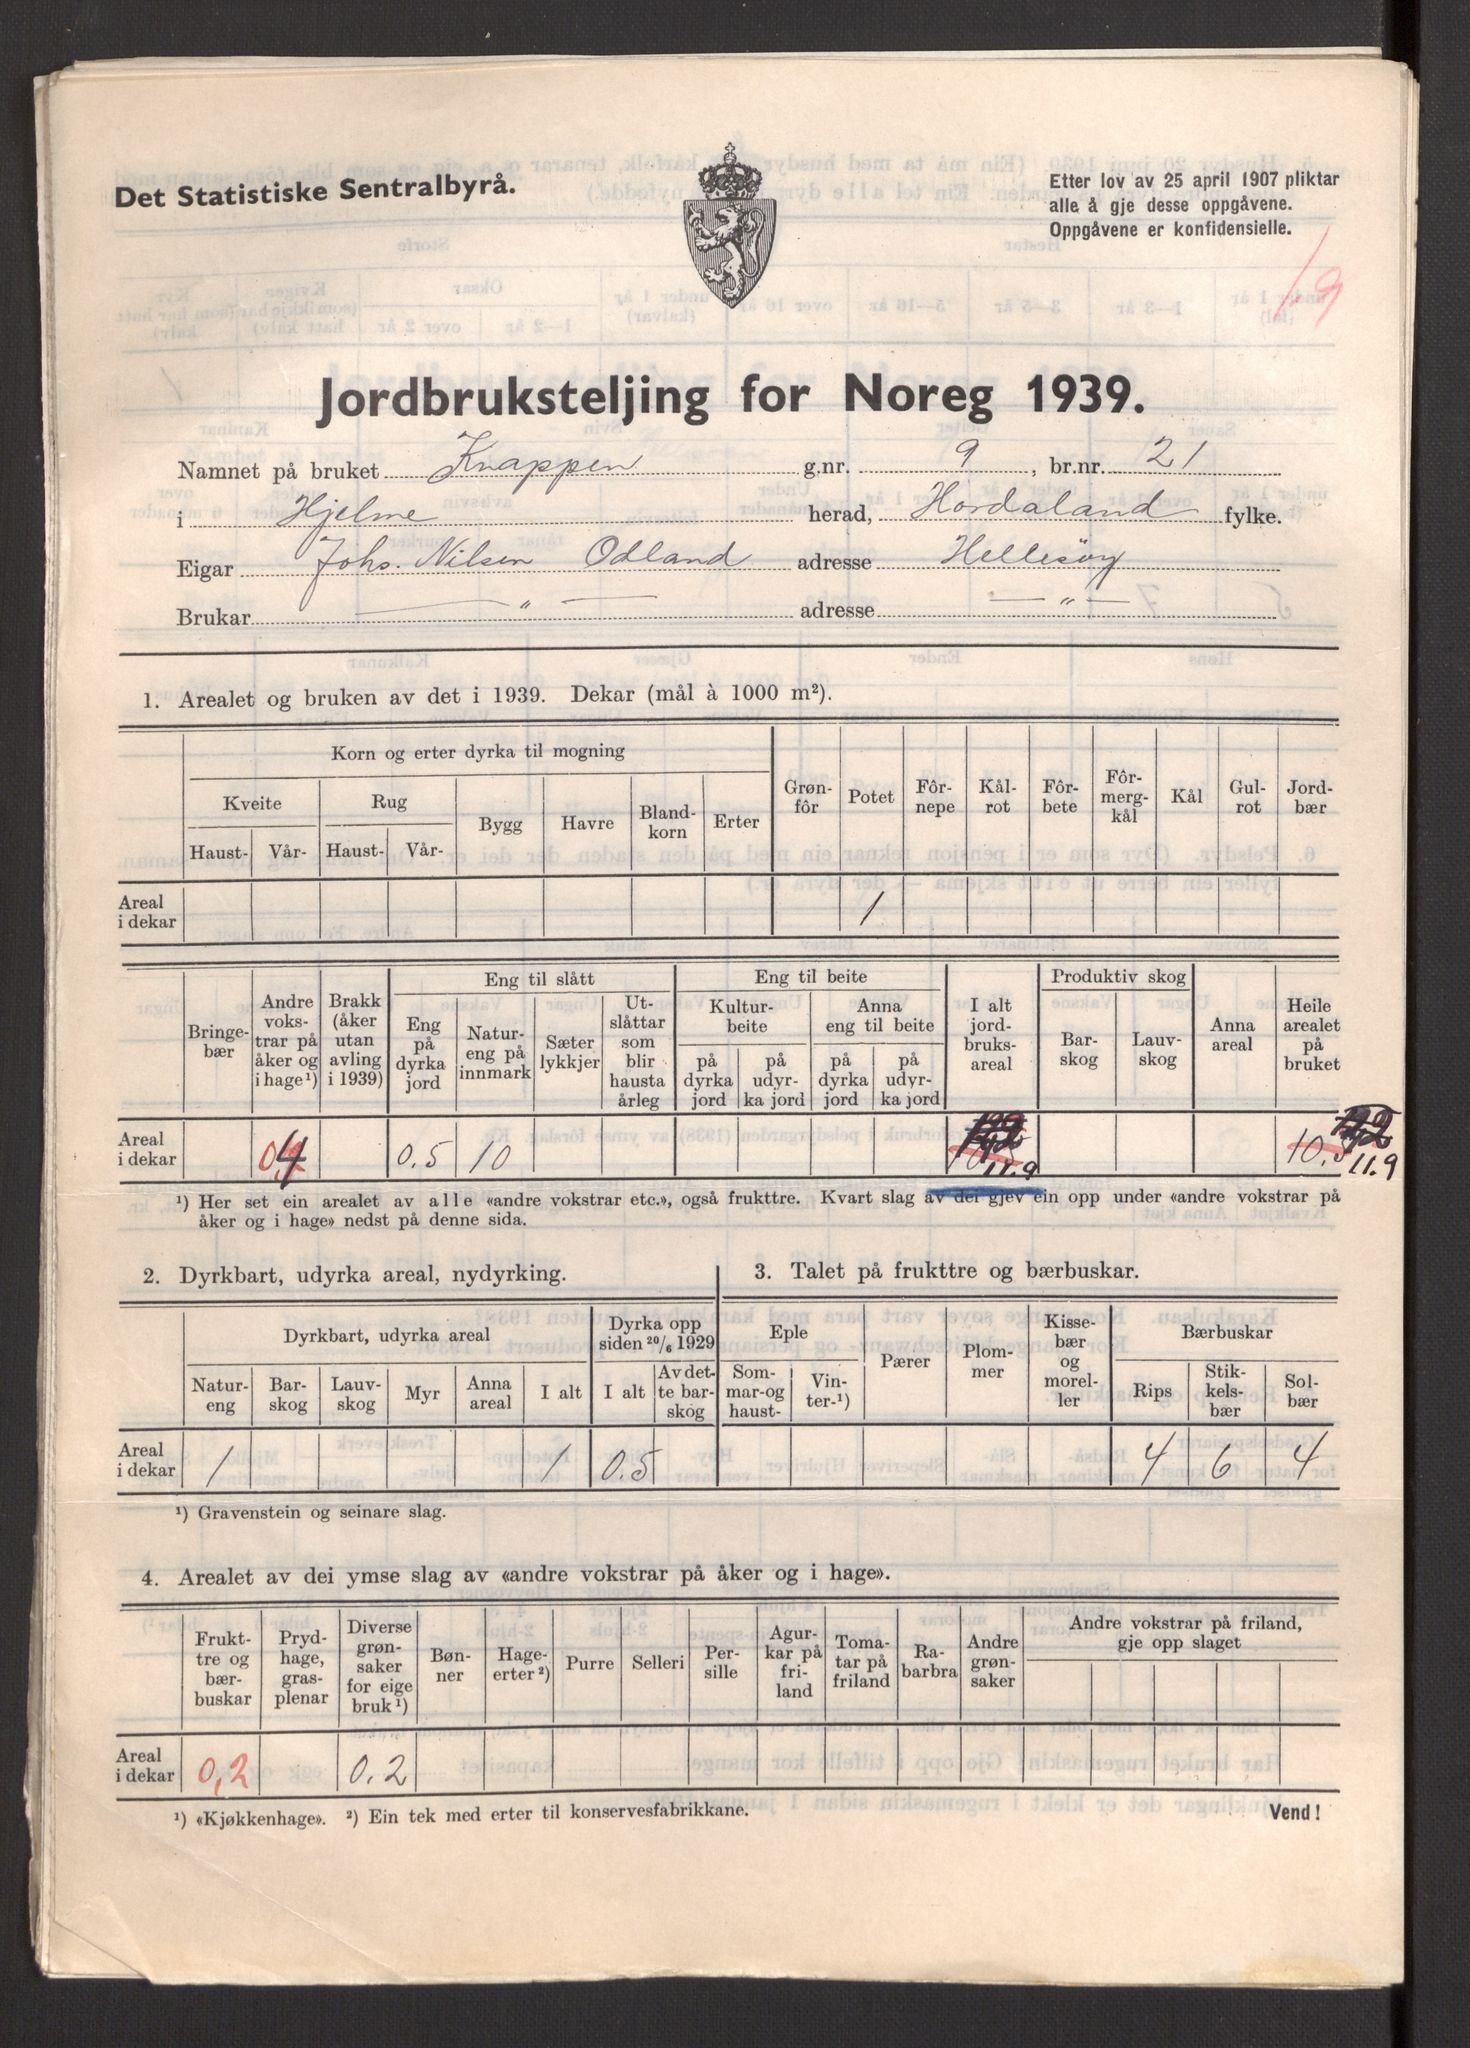 Det Statistiske Sentralbyrå.
Etter lov av 25 april 1907 pliktar
alle å gje desse oppgåvene.
Oppgåvene er konfidensielle.
19
Jordbruksteljing for Noreg 1939.
Namnet på bruket Knappen g.nr. 9, br.nr. 21
i Hjelme herad, Hordaland fylke.
Eigar Johs. Nilsen Odland adresse Hellesöy
Brukar — " — adresse — " —
1. Arealet og bruken av det i 1939. Dekar (mål à 1000 m²).
Korn og erter dyrka til mogning
Kveite Rug Bygg Havre Bland-korn Erter Grøn-fôr Potet Fôr-nepe Kål-rot Fôr-bete Fôr-mergkål Kål Gul-rot Jord-bær
Haust- Vår- Haust- Vår-
Areal i dekar 1
Bringe-bær Andre vokstrar på åker og i hage¹) Brakk (åker utan avling i 1939) Eng til slått Eng til beite I alt jordbruksareal Produktiv skog Anna areal Heile arealet på bruket
Eng på dyrka jord Natureng på innmark Sæter lykkjer Utslåttar som blir hausta årleg Kulturbeite Anna eng til beite Barskog Lauvskog
på dyrka jord på udyrka jord på dyrka jord på udyrka jord
Areal i dekar 0,4 0.5 10 11.9 10.5 11.9
¹) Her set ein arealet av alle «andre vokstrar etc.», også frukttre. Kvart slag av dei gjev ein opp under «andre vokstrar på
åker og i hage» nedst på denne sida.
2. Dyrkbart, udyrka areal, nydyrking.
Dyrkbart, udyrka areal Dyrka opp siden 20/6 1929
Natureng Barskog Lauvskog Myr Anna areal I alt I alt Av dette barskog
Areal i dekar 1 1 0.5
¹) Gravenstein og seinare slag.
3. Talet på frukttre og bærbuskar.
Eple Pærer Plommer Kissebær og moreller Bærbuskar
Sommar-og haust- Vinter-¹) Rips Stikkelsbær Solbær
4 6 4
4. Arealet av dei ymse slag av «andre vokstrar på åker og i hage».
Frukttre og bærbuskar Prydhage, grasplenar Diverse grønsaker for eige bruk¹) Bønner Hageerter²) Purre Selleri Persille Agurkar på friland Tomatar på friland Rabarbra Andre grønsaker Andre vokstrar på friland, gje opp slaget
Areal i dekar 0,2 0.2
¹) «Kjøkkenhage». ²) Ein tek med erter til konservesfabrikkane.
Vend!